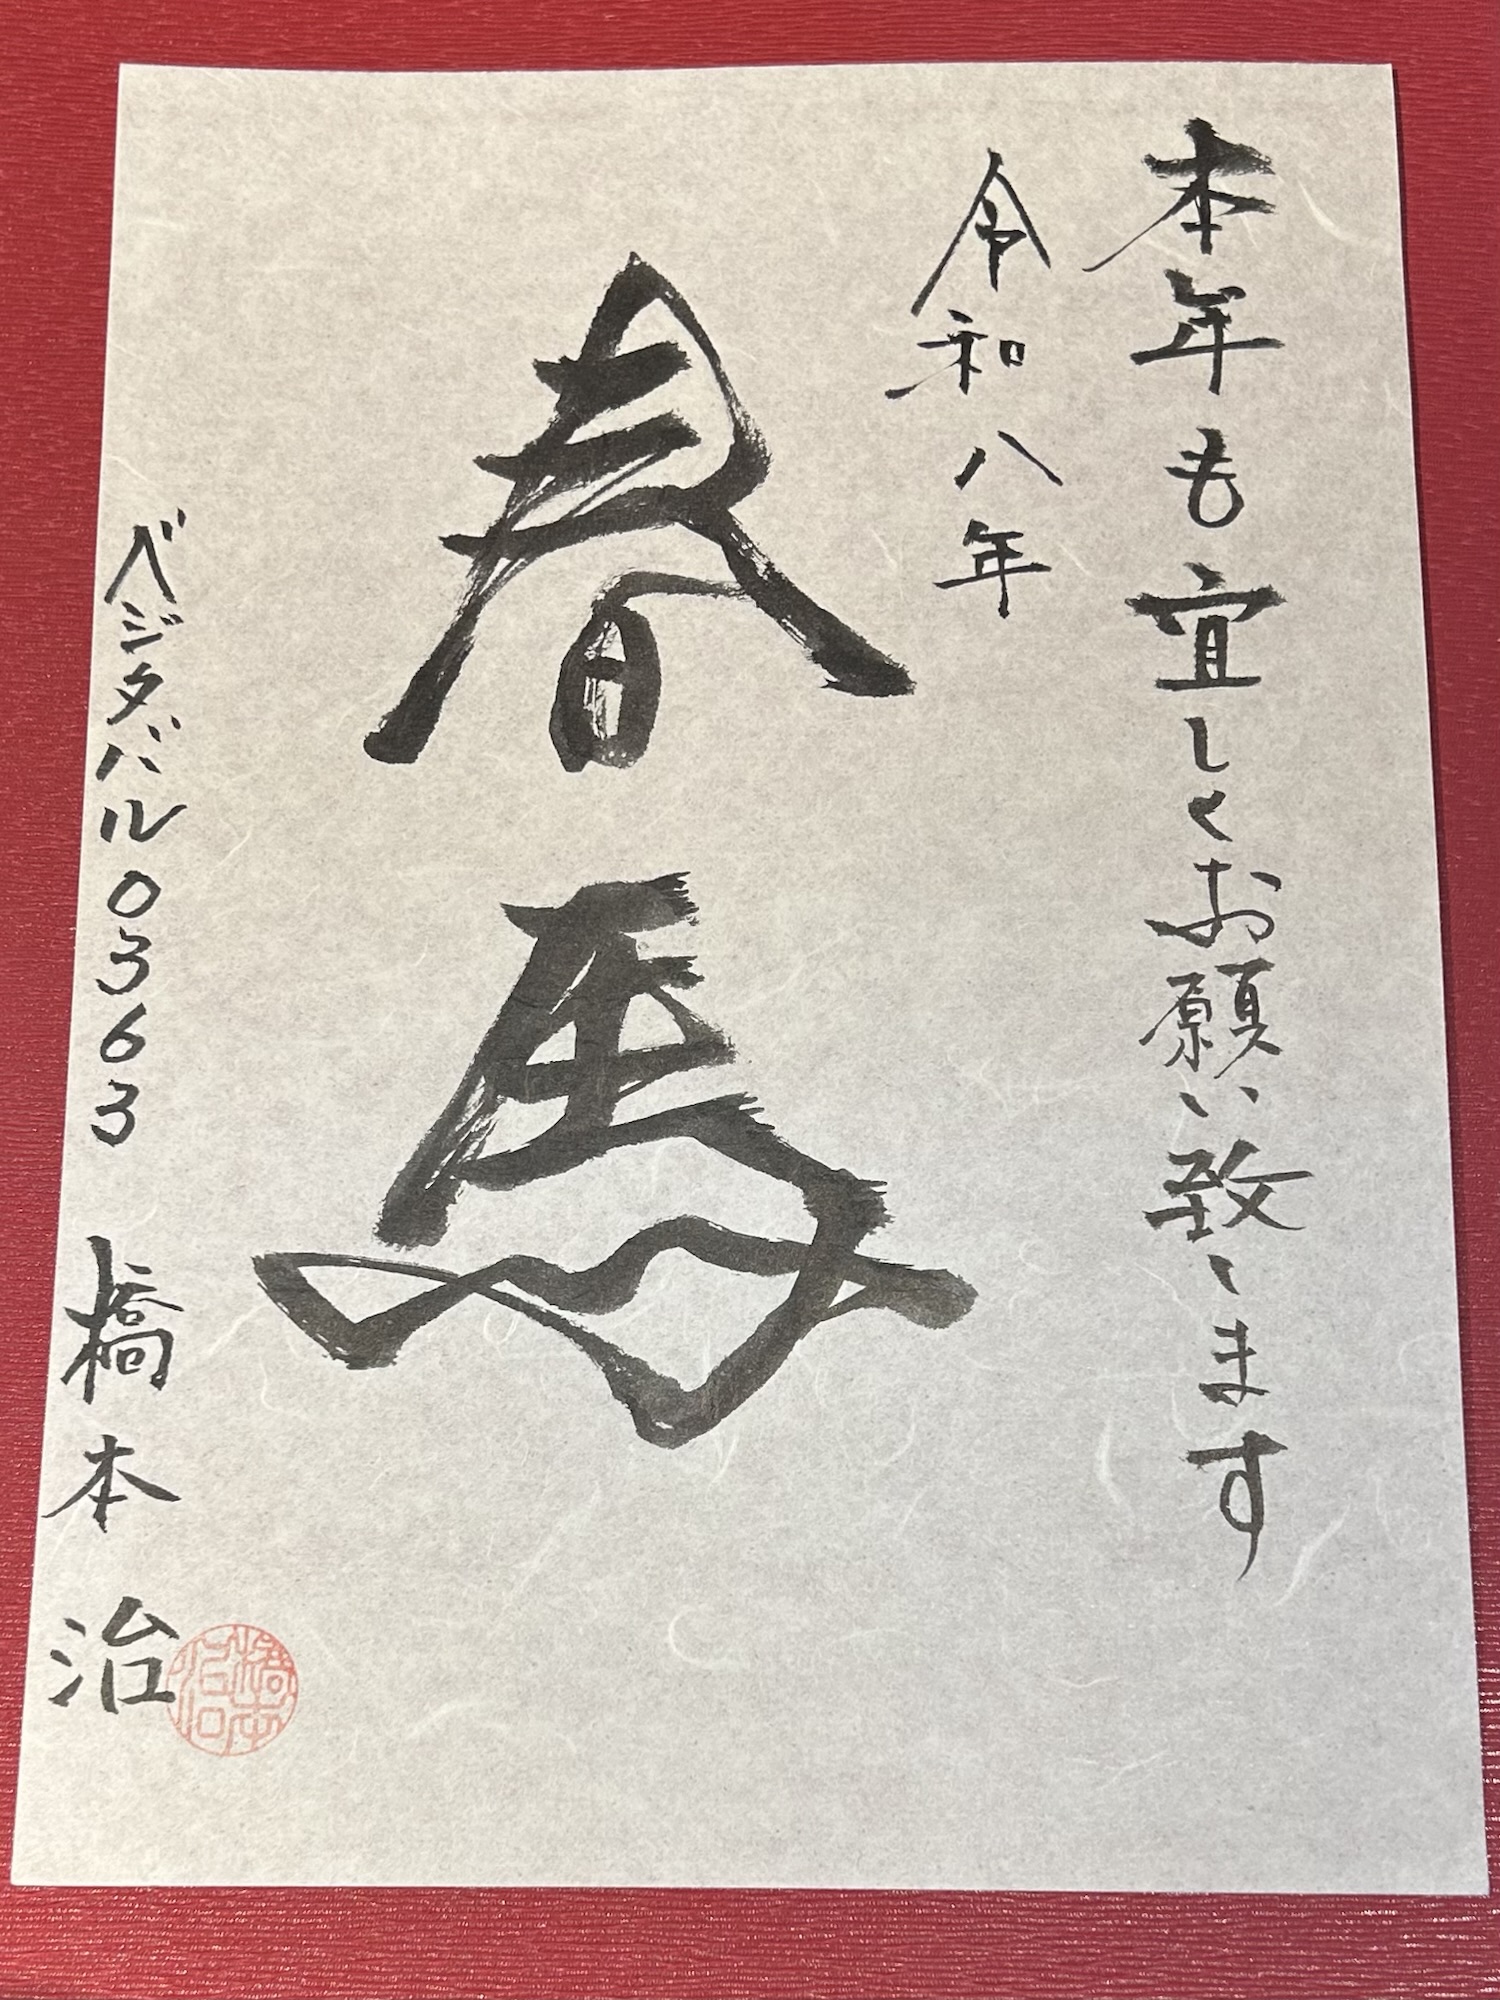 本年も宜しくお願い致します
令和八年
春馬
ベジタバル0363 橋本 治
橋本治